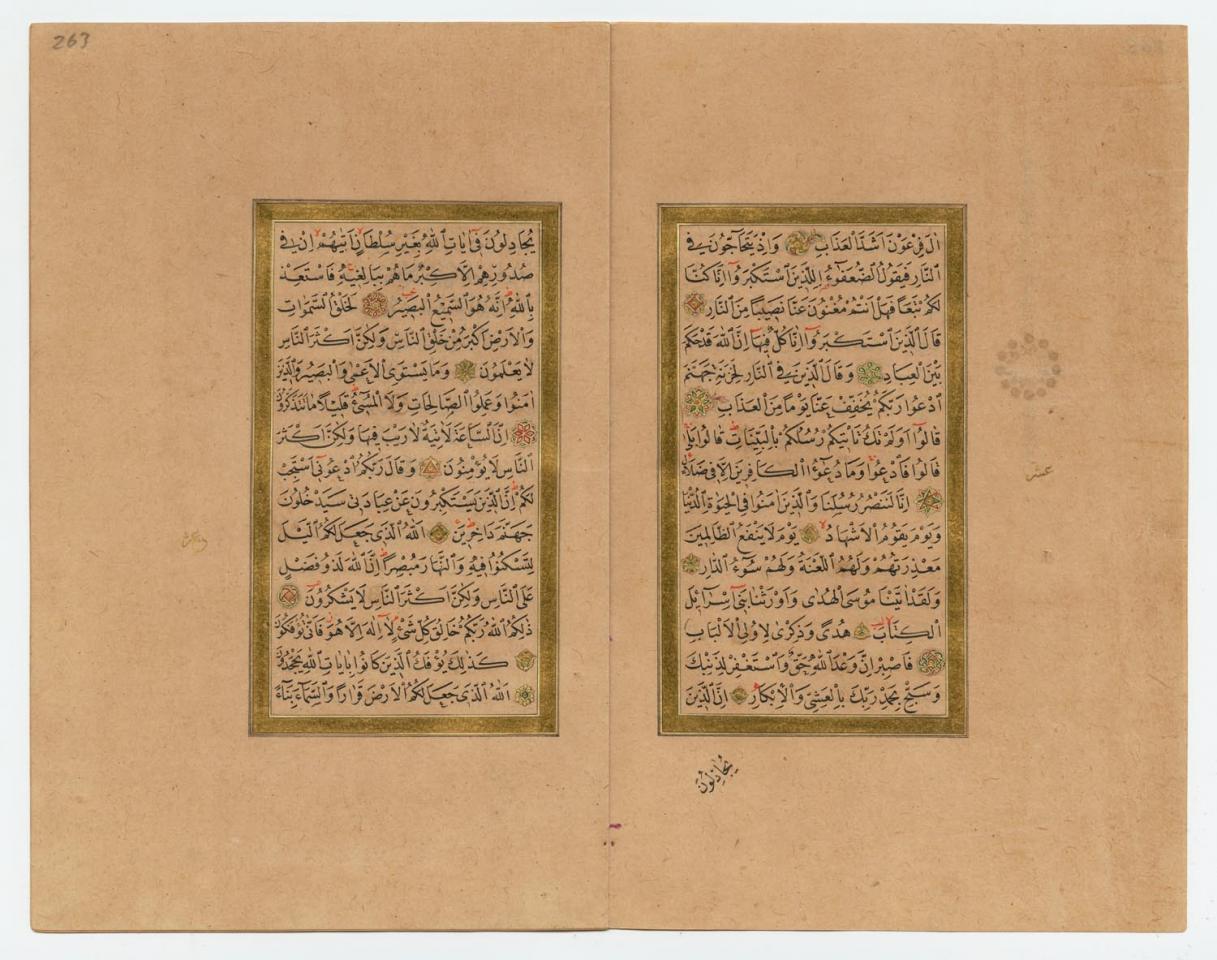 اٰلَ فِرْعَوْنَ اَشَدَّ الْعَذَابِ وَاِذْ يَتَحَاجُّونَ فِي
النَّارِ فَيَقُولُ الضُّعَفٰٓؤُا لِلَّذِينَ اسْتَكْبَرُوا اِنَّا كُنَّا
لَكُمْ تَبَعًا فَهَلْ اَنْتُمْ مُغْنُونَ عَنَّا نَصِيبًا مِنَ النَّارِ
قَالَ الَّذِينَ اسْتَكْبَرُوا اِنَّا كُلٌّ فِيهَا اِنَّ اللّٰهَ قَدْ حَكَمَ
بَيْنَ الْعِبَادِ وَقَالَ الَّذِينَ فِي النَّارِ لِخَزَنَةِ جَهَنَّمَ
ادْعُوا رَبَّكُمْ يُخَفِّفْ عَنَّا يَوْمًا مِنَ الْعَذَابِ
قَالُوا اَوَلَمْ تَكُ تَاْتِيكُمْ رُسُلُكُمْ بِالْبَيِّنَاتِ قَالُوا بَلٰى
قَالُوا فَادْعُوا وَمَا دُعٰٓؤُا الْكَافِرِينَ اِلَّا فِي ضَلَالٍ
اِنَّا لَنَنْصُرُ رُسُلَنَا وَالَّذِينَ اٰمَنُوا فِي الْحَيٰوةِ الدُّنْيَا
وَيَوْمَ يَقُومُ الْاَشْهَادُ يَوْمَ لَا يَنْفَعُ الظَّالِمِينَ
مَعْذِرَتُهُمْ وَلَهُمُ اللَّعْنَةُ وَلَهُمْ سُوءُ الدَّارِ
وَلَقَدْ اٰتَيْنَا مُوسَى الْهُدٰى وَاَوْرَثْنَا بَنِي اِسْرَائِيلَ
الْكِتَابَ هُدًى وَذِكْرٰى لِاُولِي الْاَلْبَابِ
فَاصْبِرْ اِنَّ وَعْدَ اللّٰهِ حَقٌّ وَاسْتَغْفِرْ لِذَنْبِكَ
وَسَبِّحْ بِحَمْدِ رَبِّكَ بِالْعَشِيِّ وَالْاِبْكَارِ اِنَّ الَّذِينَ
يُجَادِلُونَ
عشر
263
يُجَادِلُونَ فِي اٰيَاتِ اللّٰهِ بِغَيْرِ سُلْطَانٍ اَتٰيهُمْ اِنْ فِي
صُدُورِهِمْ اِلَّا كِبْرٌ مَا هُمْ بِبَالِغِيهِ فَاسْتَعِذْ
بِاللّٰهِ اِنَّهُ هُوَ السَّمِيعُ الْبَصِيرُ لَخَلْقُ السَّمٰوَاتِ
وَالْاَرْضِ اَكْبَرُ مِنْ خَلْقِ النَّاسِ وَلٰكِنَّ اَكْثَرَ النَّاسِ
لَا يَعْلَمُونَ وَمَا يَسْتَوِي الْاَعْمٰى وَالْبَصِيرُ وَالَّذِينَ
اٰمَنُوا وَعَمِلُوا الصَّالِحَاتِ وَلَا الْمُسِيءُ قَلِيلًا مَا تَتَذَكَّرُونَ
اِنَّ السَّاعَةَ لَاٰتِيَةٌ لَا رَيْبَ فِيهَا وَلٰكِنَّ اَكْثَرَ
النَّاسِ لَا يُؤْمِنُونَ وَقَالَ رَبُّكُمُ ادْعُونِي اَسْتَجِبْ
لَكُمْ اِنَّ الَّذِينَ يَسْتَكْبِرُونَ عَنْ عِبَادَتِي سَيَدْخُلُونَ
جَهَنَّمَ دَاخِرِينَ اَللّٰهُ الَّذِي جَعَلَ لَكُمُ الَّيْلَ
لِتَسْكُنُوا فِيهِ وَالنَّهَارَ مُبْصِرًا اِنَّ اللّٰهَ لَذُو فَضْلٍ
عَلَى النَّاسِ وَلٰكِنَّ اَكْثَرَ النَّاسِ لَا يَشْكُرُونَ
ذٰلِكُمُ اللّٰهُ رَبُّكُمْ خَالِقُ كُلِّ شَيْءٍ لَا اِلٰهَ اِلَّا هُوَ فَاَنّٰى تُؤْفَكُونَ
كَذٰلِكَ يُؤْفَكُ الَّذِينَ كَانُوا بِاٰيَاتِ اللّٰهِ يَجْحَدُونَ
اَللّٰهُ الَّذِي جَعَلَ لَكُمُ الْاَرْضَ قَرَارًا وَالسَّمَاءَ بِنَاءً